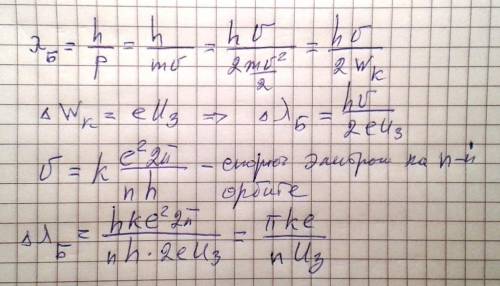 λ_Б = h/p = h/(mv) = hv/(2 mv²/2) = hv/(2W_k)
ΔW_k = eU_з ⇒ Δλ_Б = hv/(2eU_з)
v = k e²2π/(nh) – скорость электрона на n-й
орбите
Δλ_Б = hke²2π/(nh·2eU_з) = πke/(nU_з)